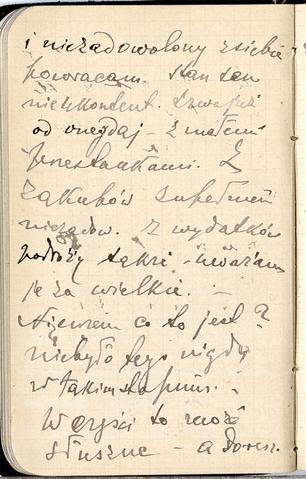 i niezadowolony z siebie
powracam. Stan ten
nieukontent. trwa już
od onegdaj – z małemi
przestankami. Z
zakupów zupełnie
niezadow. z wydatków
podróży także – uważam
je za wielkie. –
Niewiem co to jest?
niebyło tego nigdy
w takim stopniu. –
W części to może
słuszne – a